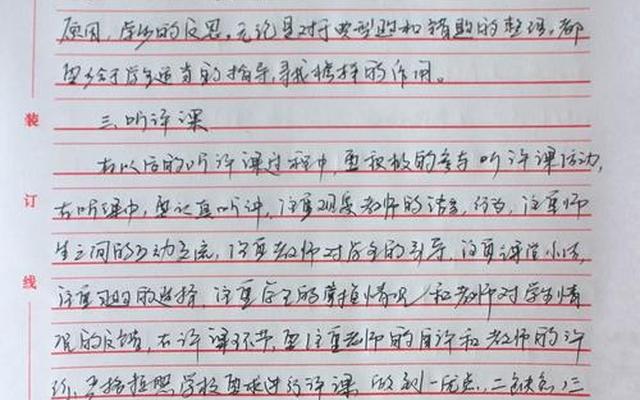 原因，ướ的反思。无论是对于典型题和错题的整理，都
要给予学生适当的指导，寻找榜样的作用。
装
三、听评课
在以后的听评课过程中，要积极的参与听评课活动，
订
在听课中，要认真听讲，注重观察老师的语言，行为，注重师
生之间的互动交流，注重教师对学生的引导，注重课堂小结，
线
注重题目的选择，注重学生的掌握情况和老师对学生情
况的反馈，在评课环节，要注重老师的自评和老师的评
价，严格按照学校要求进行评课，做到一优点，二缺点，三